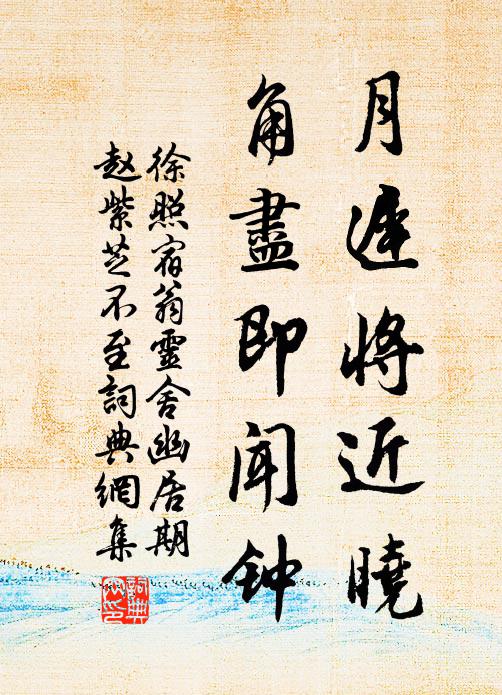 月遲將近曉
角盡即闻钟
徐照宿翁靈舍幽居期
赵紫芝不至詞典網集